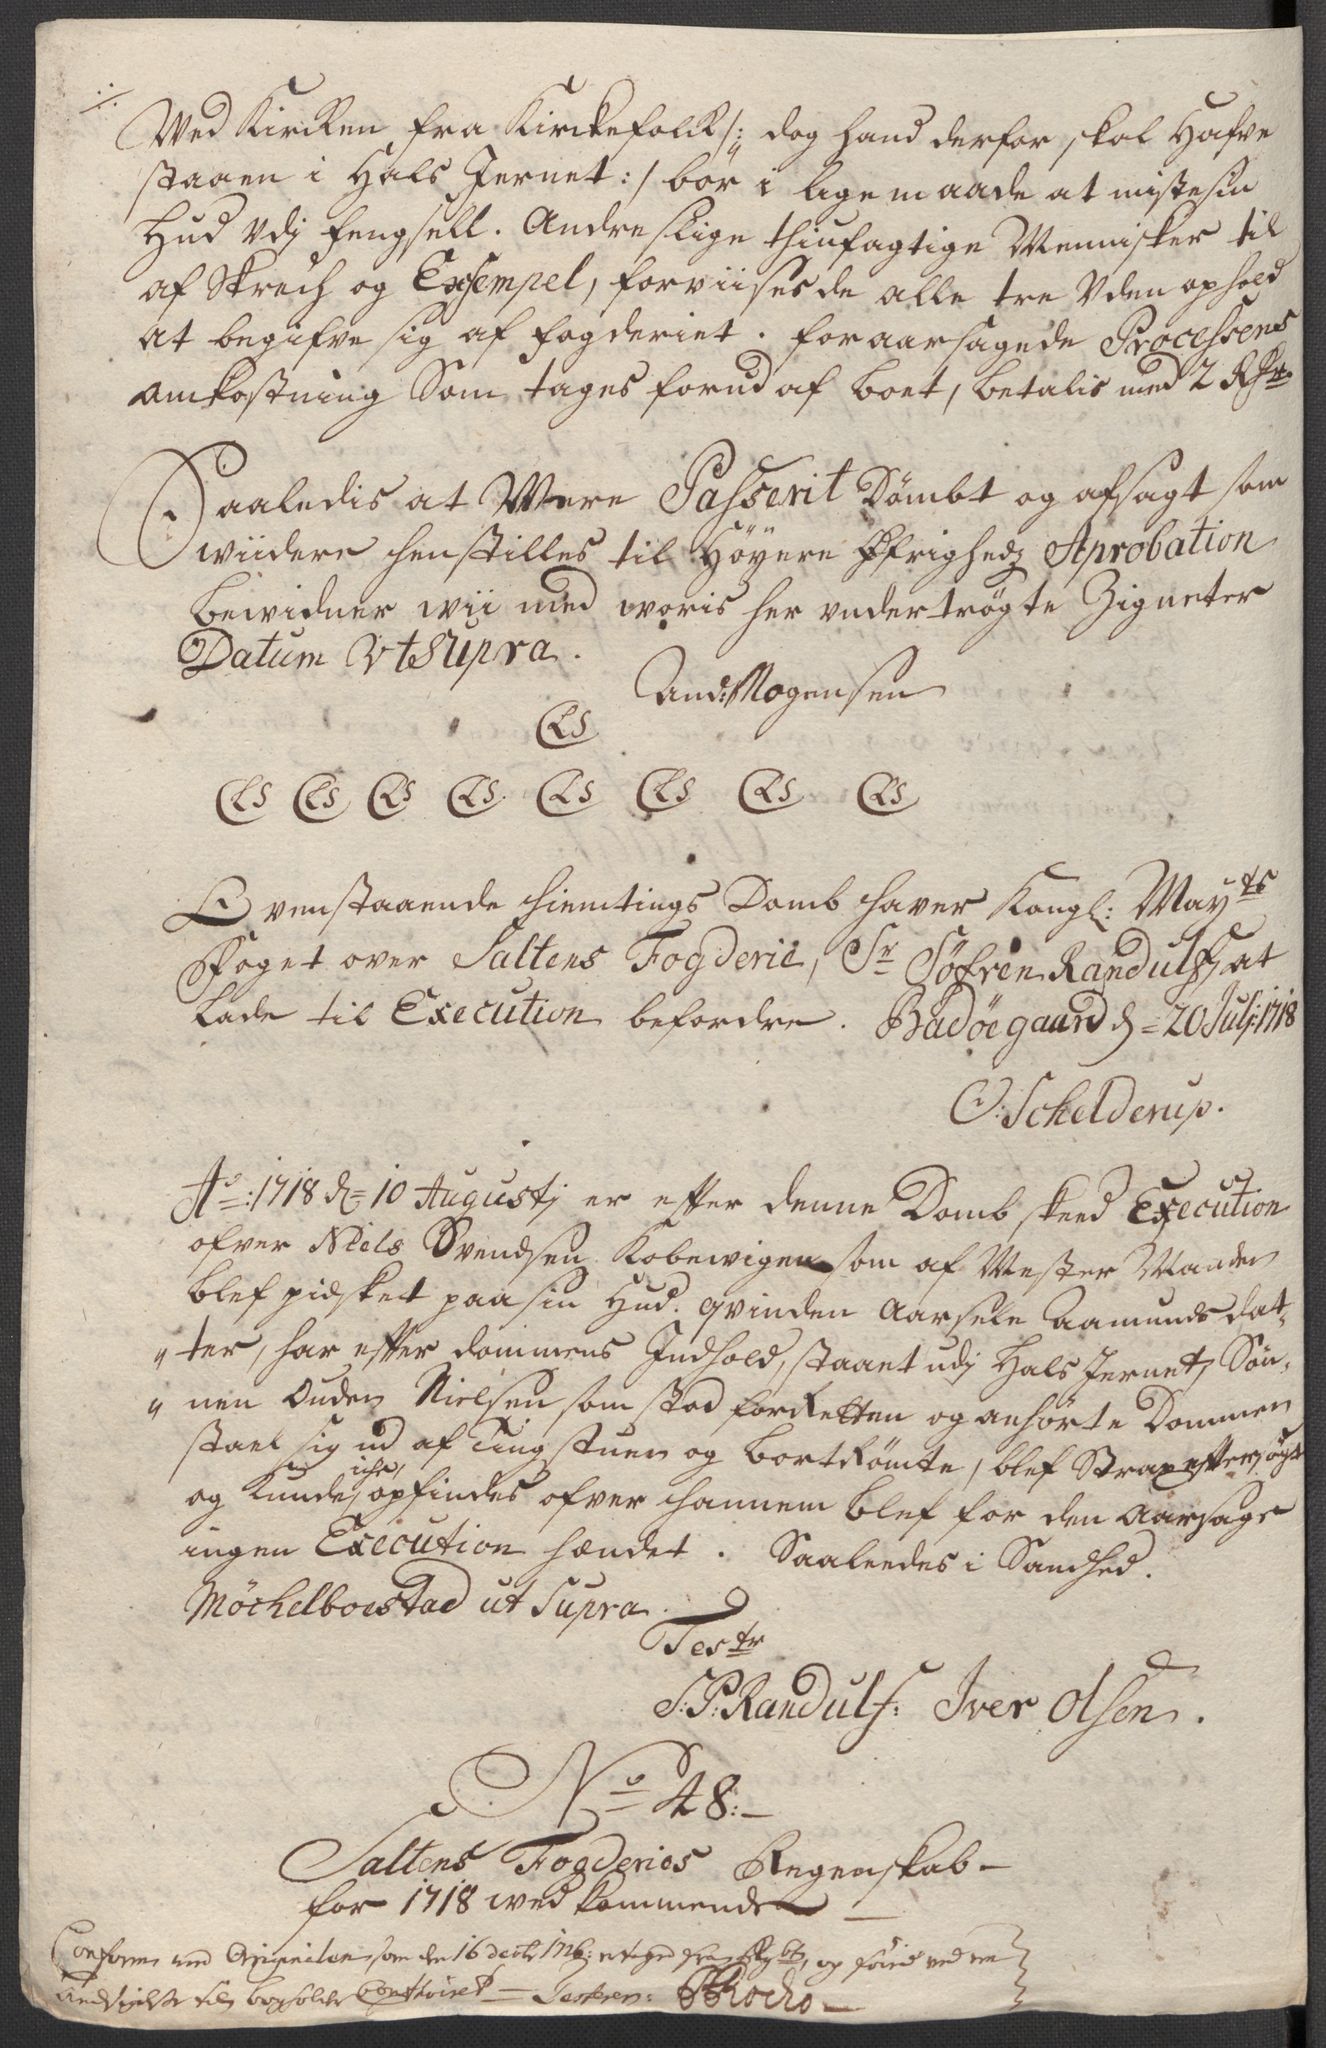 Ved Kircken fra Kirckefolck /: dog hand derfor skal Hafve
staaen i Hals Jernet :/ bör i lige maade at miste sin
Hud Vdj fengsell. Andre slige thiufagtige Mennisker til
af Skrech og Exsempel, forviises de alle tre Uden ophold
at begifve sig af fogderiet. foraarsagede Processens
omkostning Som tages forud af boet, betalis med 2 Rdr
Saaledis at Were Passerit Dömbt og afsagt som
wiidere henstilles til Höyere Öfrighedz Aprobation
bewidner wii med woris her undertrögte Zigneter
Datum Vt Supra.
And: Mogensen
LS
LS LS LS LS LS LS LS LS
Ovenstaaende hiemtings Domb haver Kongl: Mayts
Foget over Saltens Fogderie, Sr Söfren Randulf, at
Lade til Execution befordre. Badöegaard d = 20 Julj: 1718
O: Schelderup.
Ao: 1718 d = 10 Augustj er efter denne Domb skeed Execution
ofver Niels Svendsen Kobewigen som af Mester Manden
blef pidsket paa sin Hud. qvinden Aarsele Aamunds dat,,
,, ter, har efter dommens Indhold, staaet udj Hals Jernet, Sön,,
,, nen Ouden Nielsen som stod for Retten og anhörte Dommen
stael sig ud af Tingstuen og bortRömte, blef Strax eftersögt
og Kunde iche opfindes ofver hannem blef for den Aarsage
ingen Execution hændet. Saaleedes i Sandhed.
Möchelboestad ut Supra.
Tester
S: P: Randulf: Iver Olsen.
No 48:
Saltens Fogderies Regenskab
for 1718 wedkommende
Conform med Originalen som den 16 dectr: er taget fra og ved en
til Contoiret Testerer: